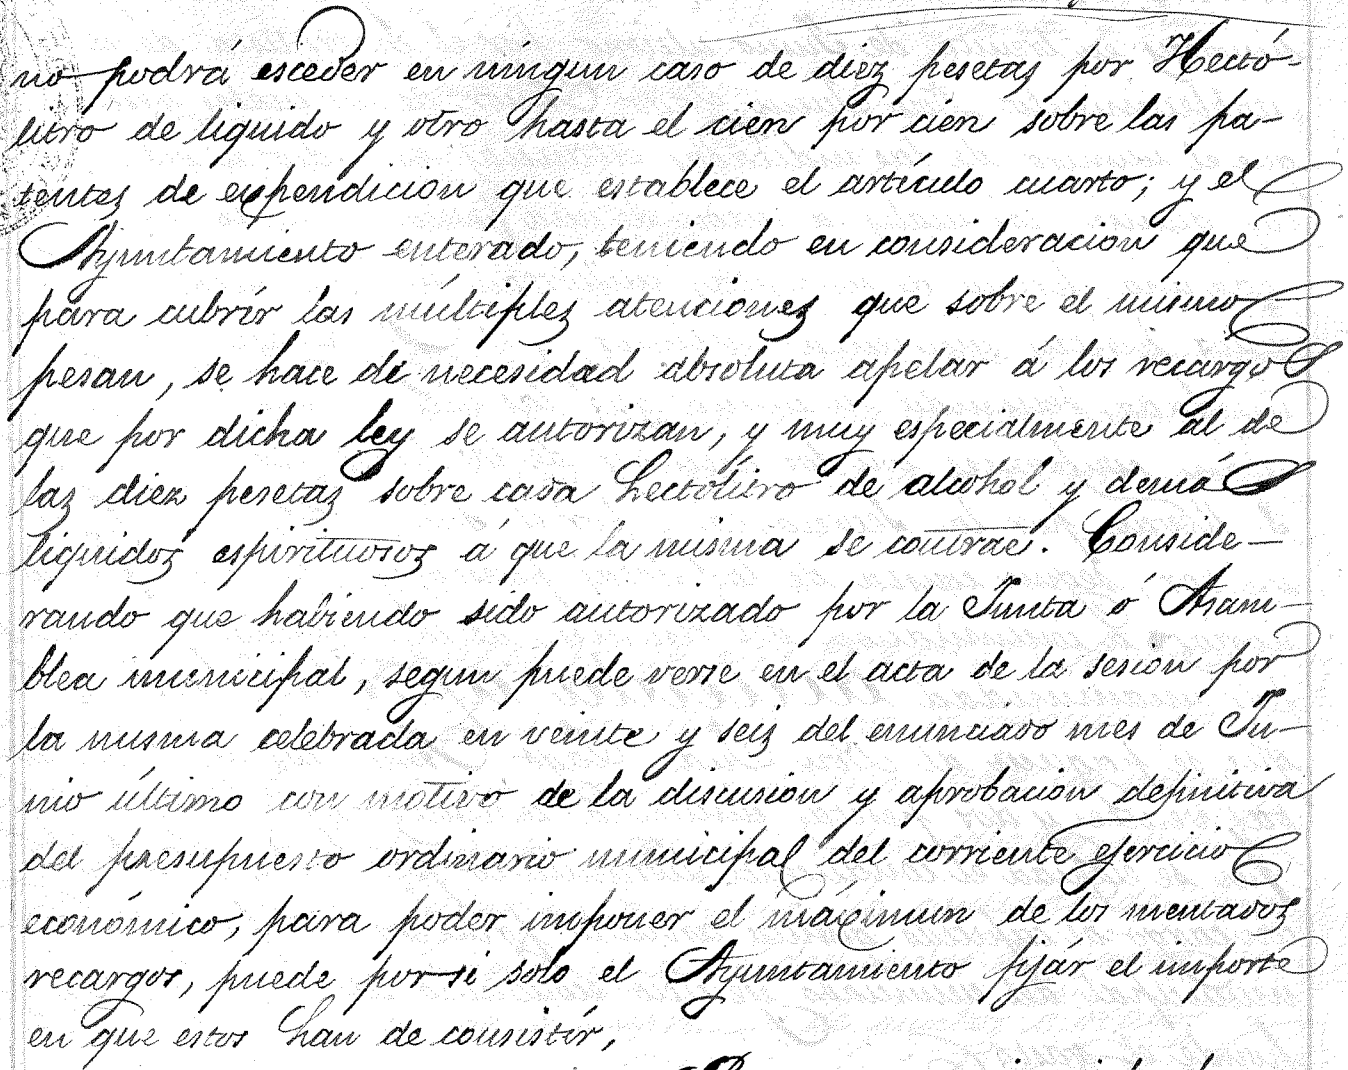 no podrá esceder en ningun caso de diez pesetas por Hectó-
litro de liquido y otro hasta el cien por cien sobre las pa-
tentes de expendicion que establece el artículo cuarto; y el
Ayuntamiento enterado, teniendo en consideracion que
para cubrír las múltiples atenciones que sobre el mismo
pesan, se hace de necesidad absoluta apelar á los recargos
que por dicha ley se autorizan, y muy especialmente al de
las diez pesetas sobre cada hectólitro de alcohol y demás
liquidos espirituosos á que la misma se contrae. Conside-
rando que habiendo sido autorizado por la Junta ó Asam-
blea municipal, segun puede verse en el acta de la sesion por
la misma celebrada en veinte y seis del enunciado mes de Ju-
nio último con motivo de la discusion y aprobacion definitiva
del presupuesto ordinario municipal del corriente ejercicio
económico, para poder imponer el máximun de los mentados
recargos, puede por si solo el Ayuntamiento fijár el importe
en que estos han de consistír,